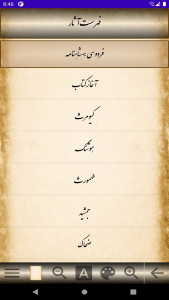 8:46
فهرست آثار
فردوسی » شاهنامه
آغاز کتاب
کیومرث
هوشنگ
طهمورث
جمشید
ضحاک
A